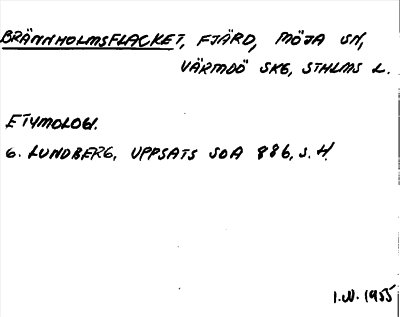 BRÄNNHOLMSFLACKET, FJÄRD, MÖJA SN,
VÄRMDÖ SKG, STHLMS L.
ETYMOLOGI.
G. LUNDBERG, UPPSATS SOA 886, S. 4.
1955